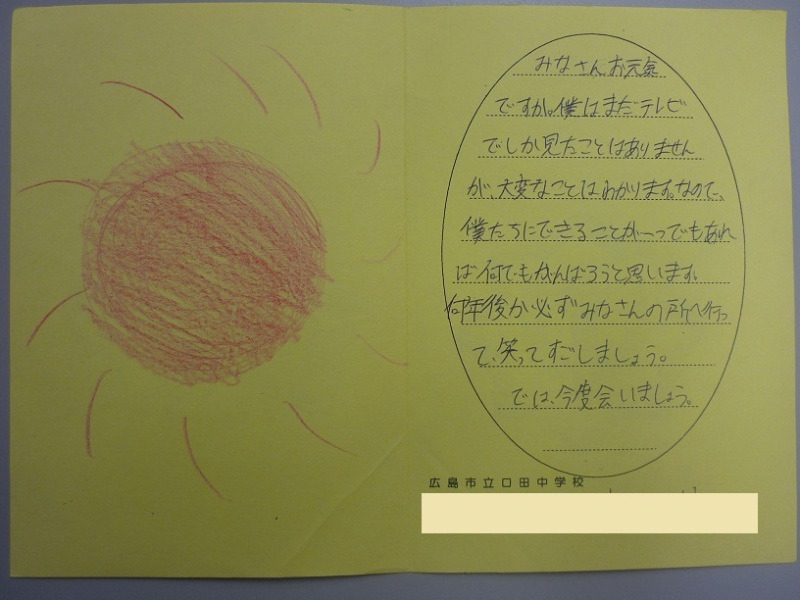 みなさんお元気
ですか。僕はまだテレビ
でしか見たことはありません
が、大変なことはわかります。なので、
僕たちにできることが一つでもあれ
ば何でもがんばろうと思います。
何年後か必ずみなさんの所へ行っ
て、笑ってすごしましょう。
では、今度会いましょう。
広島市立口田中学校